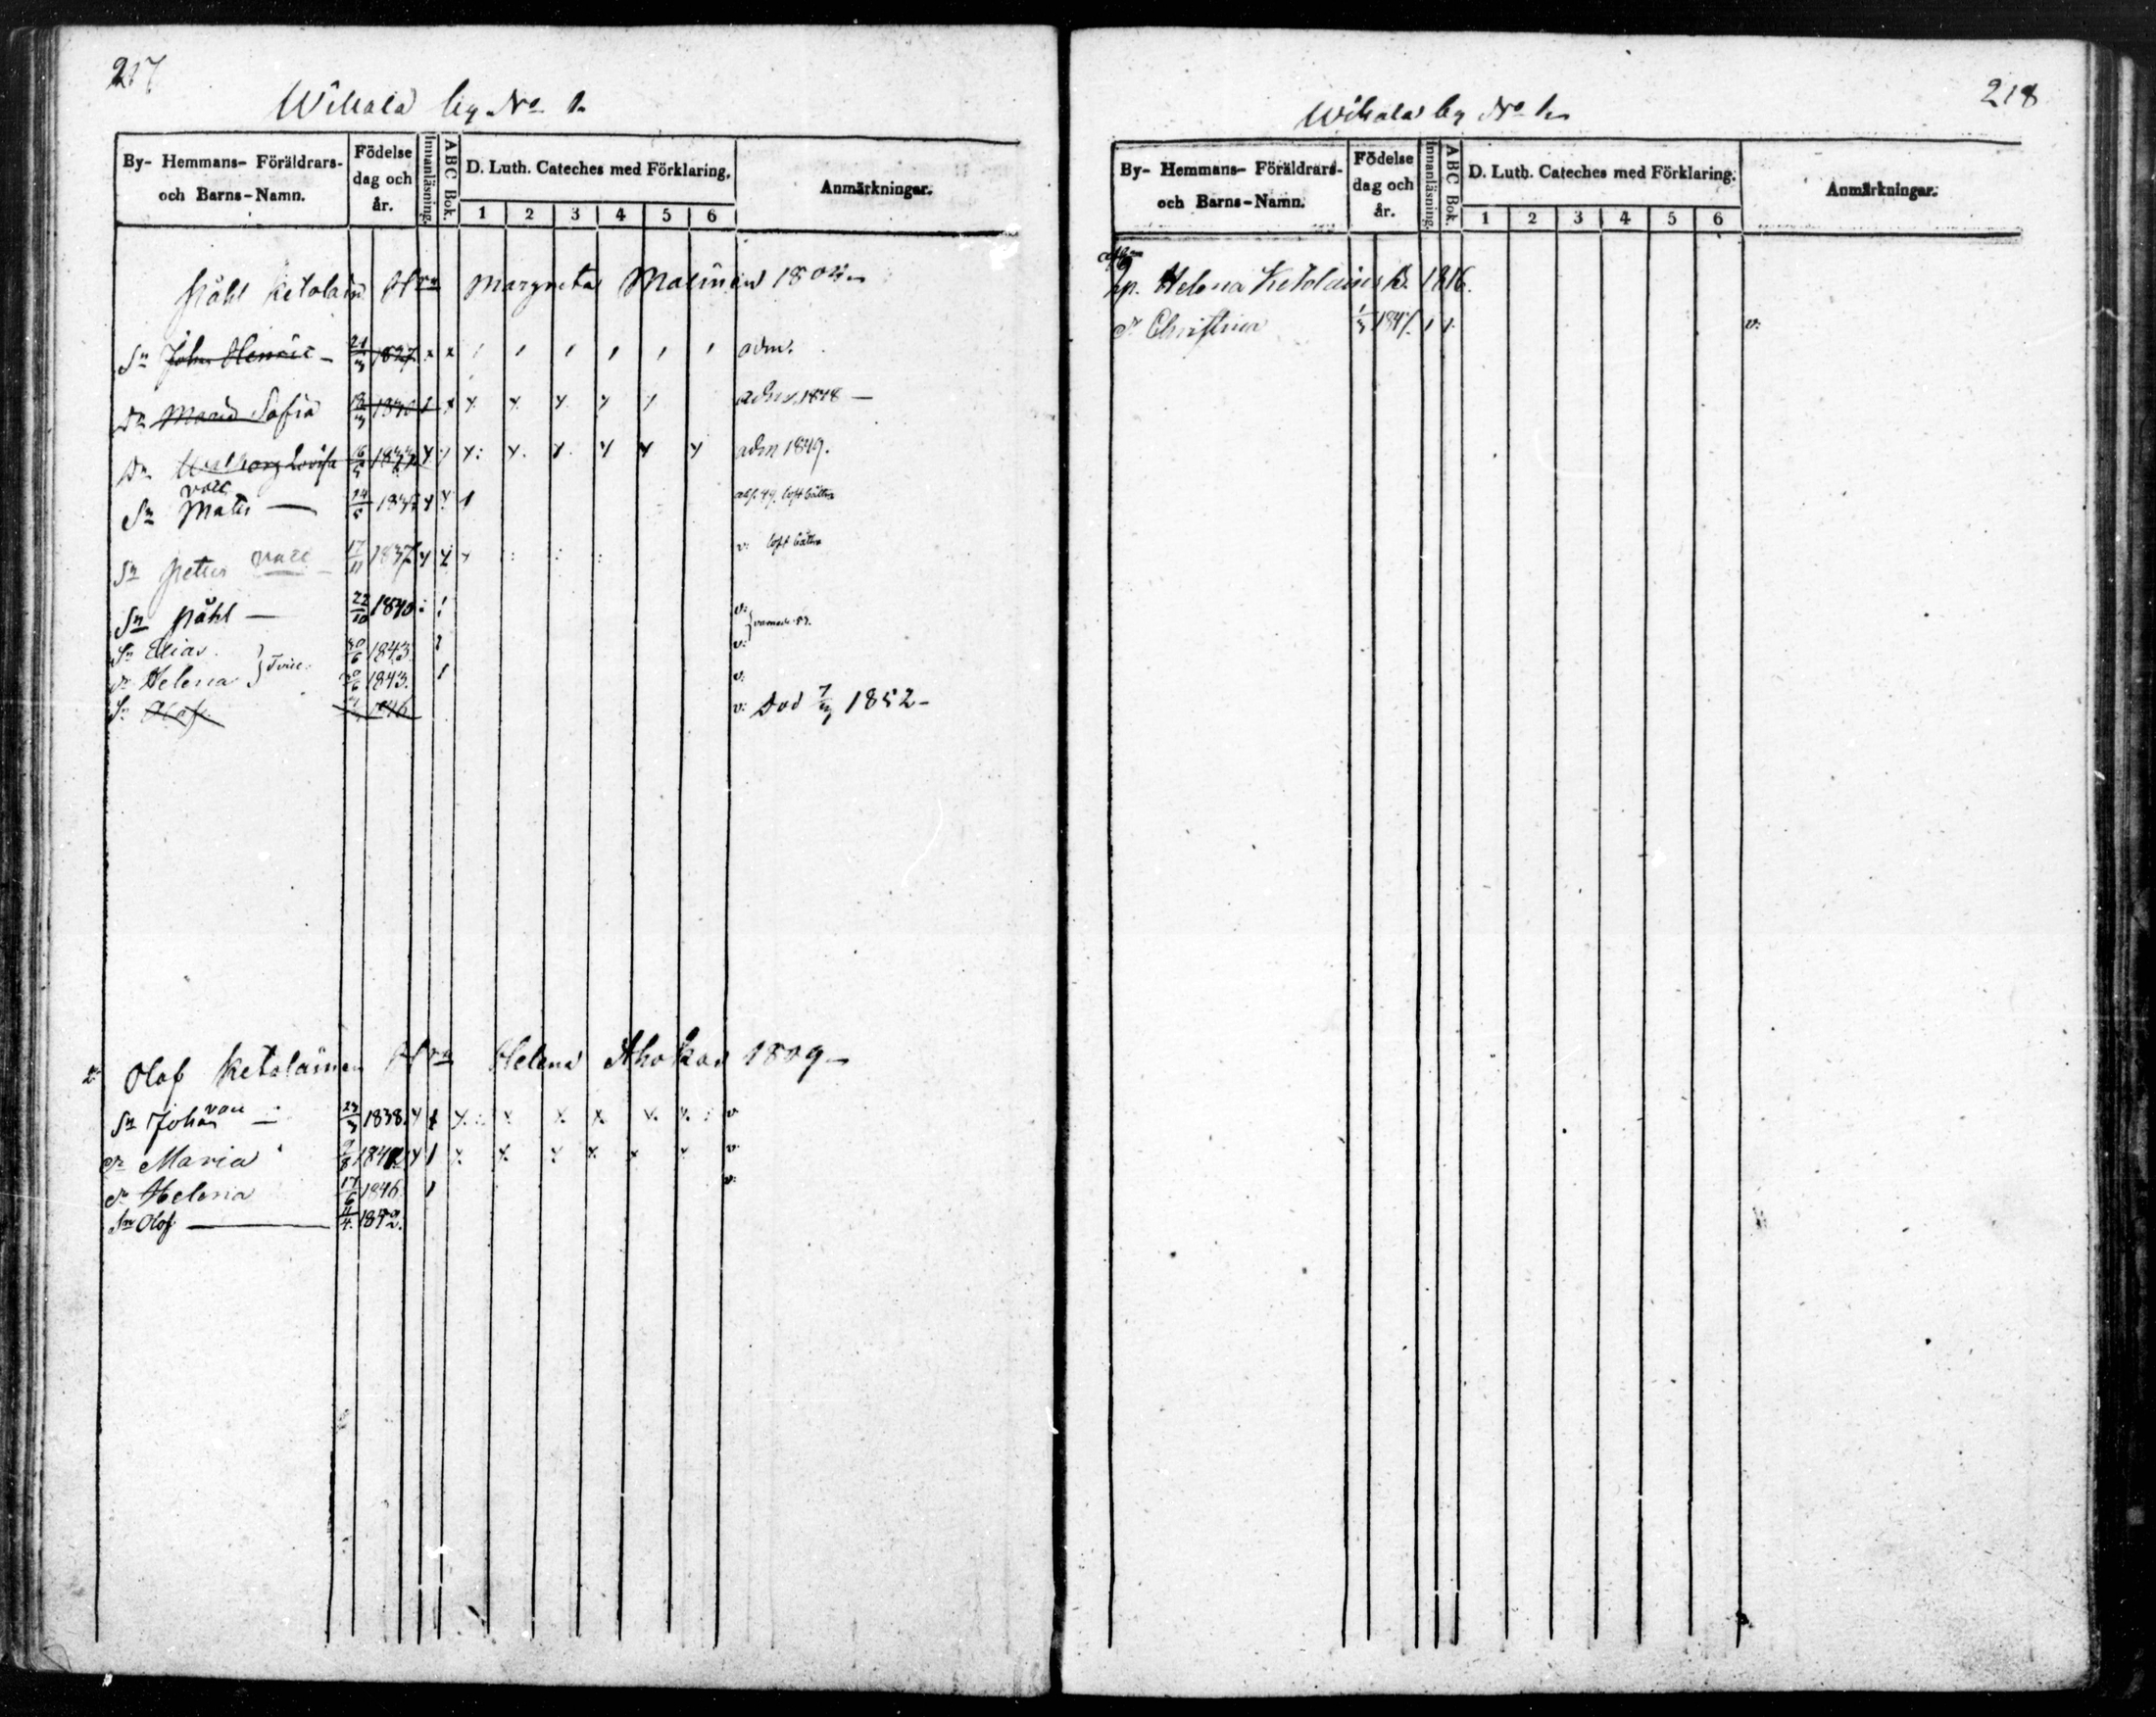 217
Wihala by No 1.
By- Hemmans- Föräldrars- och Barns-Namn.
Födelse dag och år.
Innanläsning.
ABC Bok.
D. Luth. Cateches med Förklaring.
1 2 3 4 5 6
Anmärkningar.
Påhl Ketolain H:ru Margreta Malinen 1804
Sn Joh. Henric 21/3 1827 x x adm.
Dr Maria Sofia 1830 adm. 1848
Dr Walborg Lovisa 16/5 183 adm 1849.
vacc
Sn Mats 14/5 183 49. loft bättra
Sn Petter vacc 17/11 1837 v: loft bättra
Sn Påhl 22/10 1840 v:
Sn Elias 30/6 1843 v:
Dr Helena } Tvill. 30/6 1843. v:
Sn Olof 1846 v: Död 7/ 1852
2 Olof Ketolainen H:ru Helena Ahokas 1809
vacc
Sn Johan 23/3 1838. v
Dr Maria /8 184 v
Dr Helena 17/6 1846 v:
Sn Olof 11/4. 18
218
Wihala by No 1.
By- Hemmans- Föräldrars- och Barns-Namn.
Födelse dag och år.
Innanläsning.
ABC Bok.
D. Luth. Cateches med Förklaring.
1 2 3 4 5 6
Anmärkningar.
Helena Ketolain 1816.
Dr Christina 1/3 184 v: